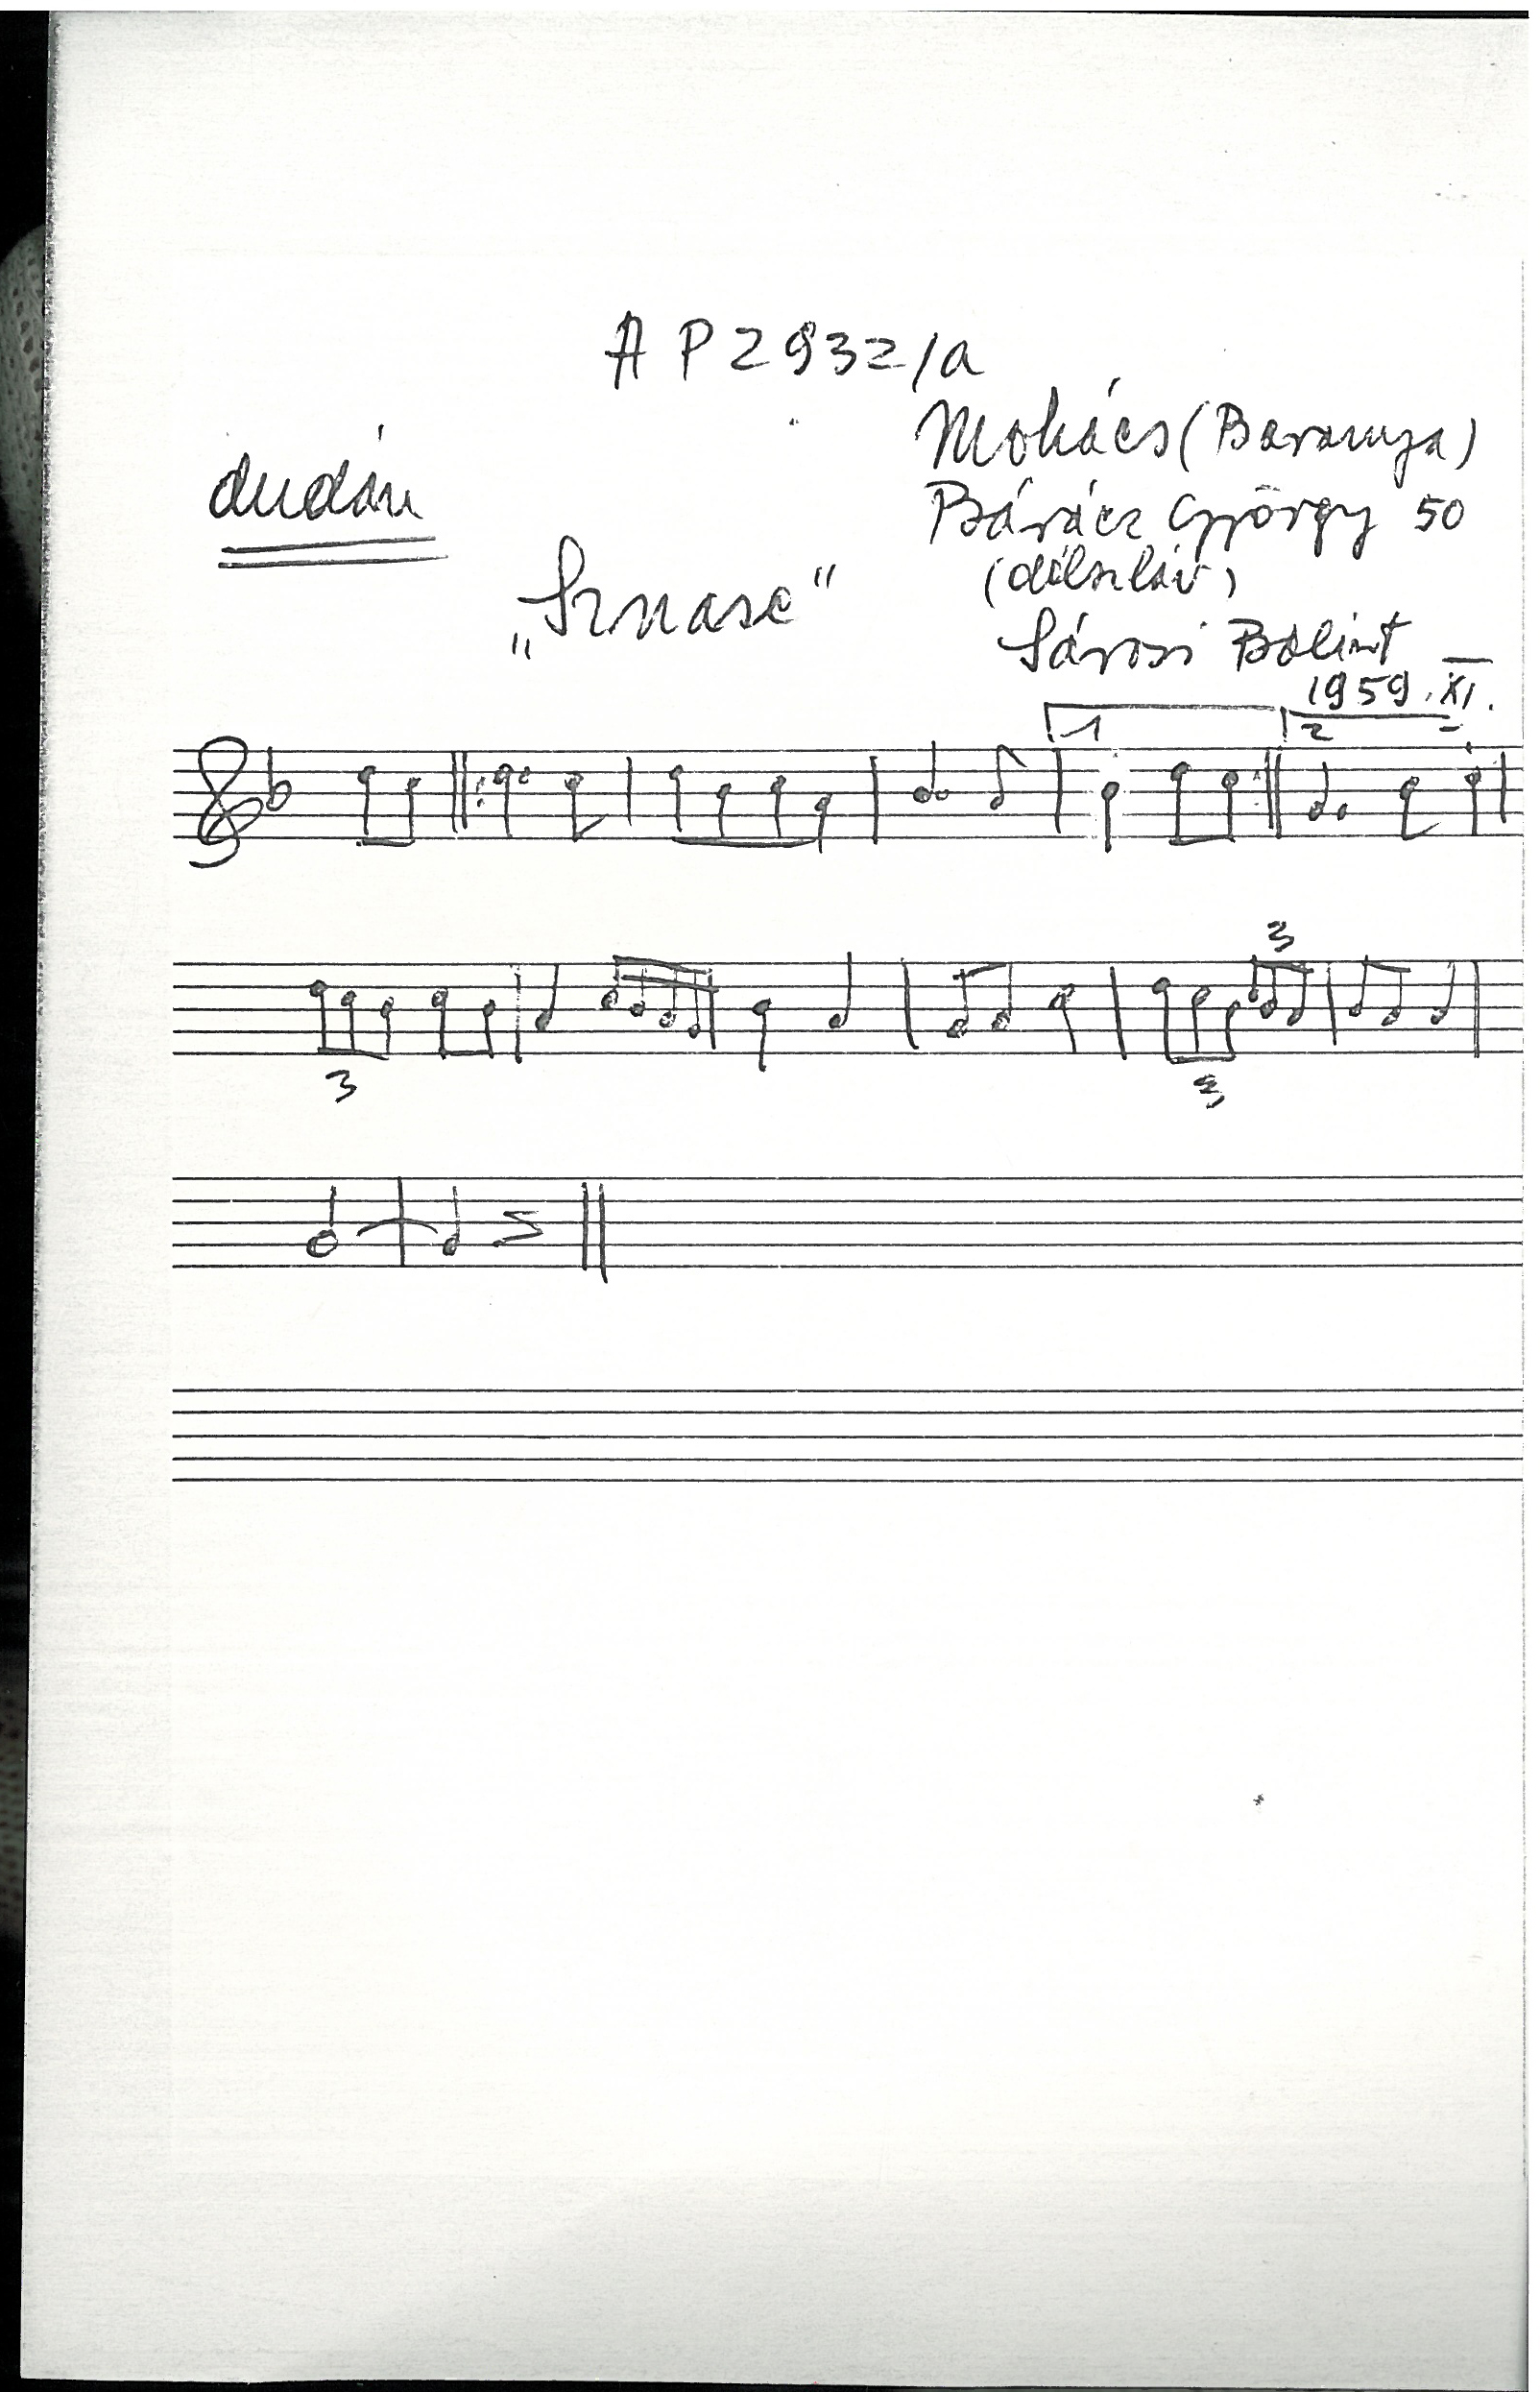 AP 2932/a
Mohács (Baranya)
dudán
Bárácz György 50
(délszláv)
„Sznase"
Sárosi Bálint
1959. XI.
1
2
3
3
3